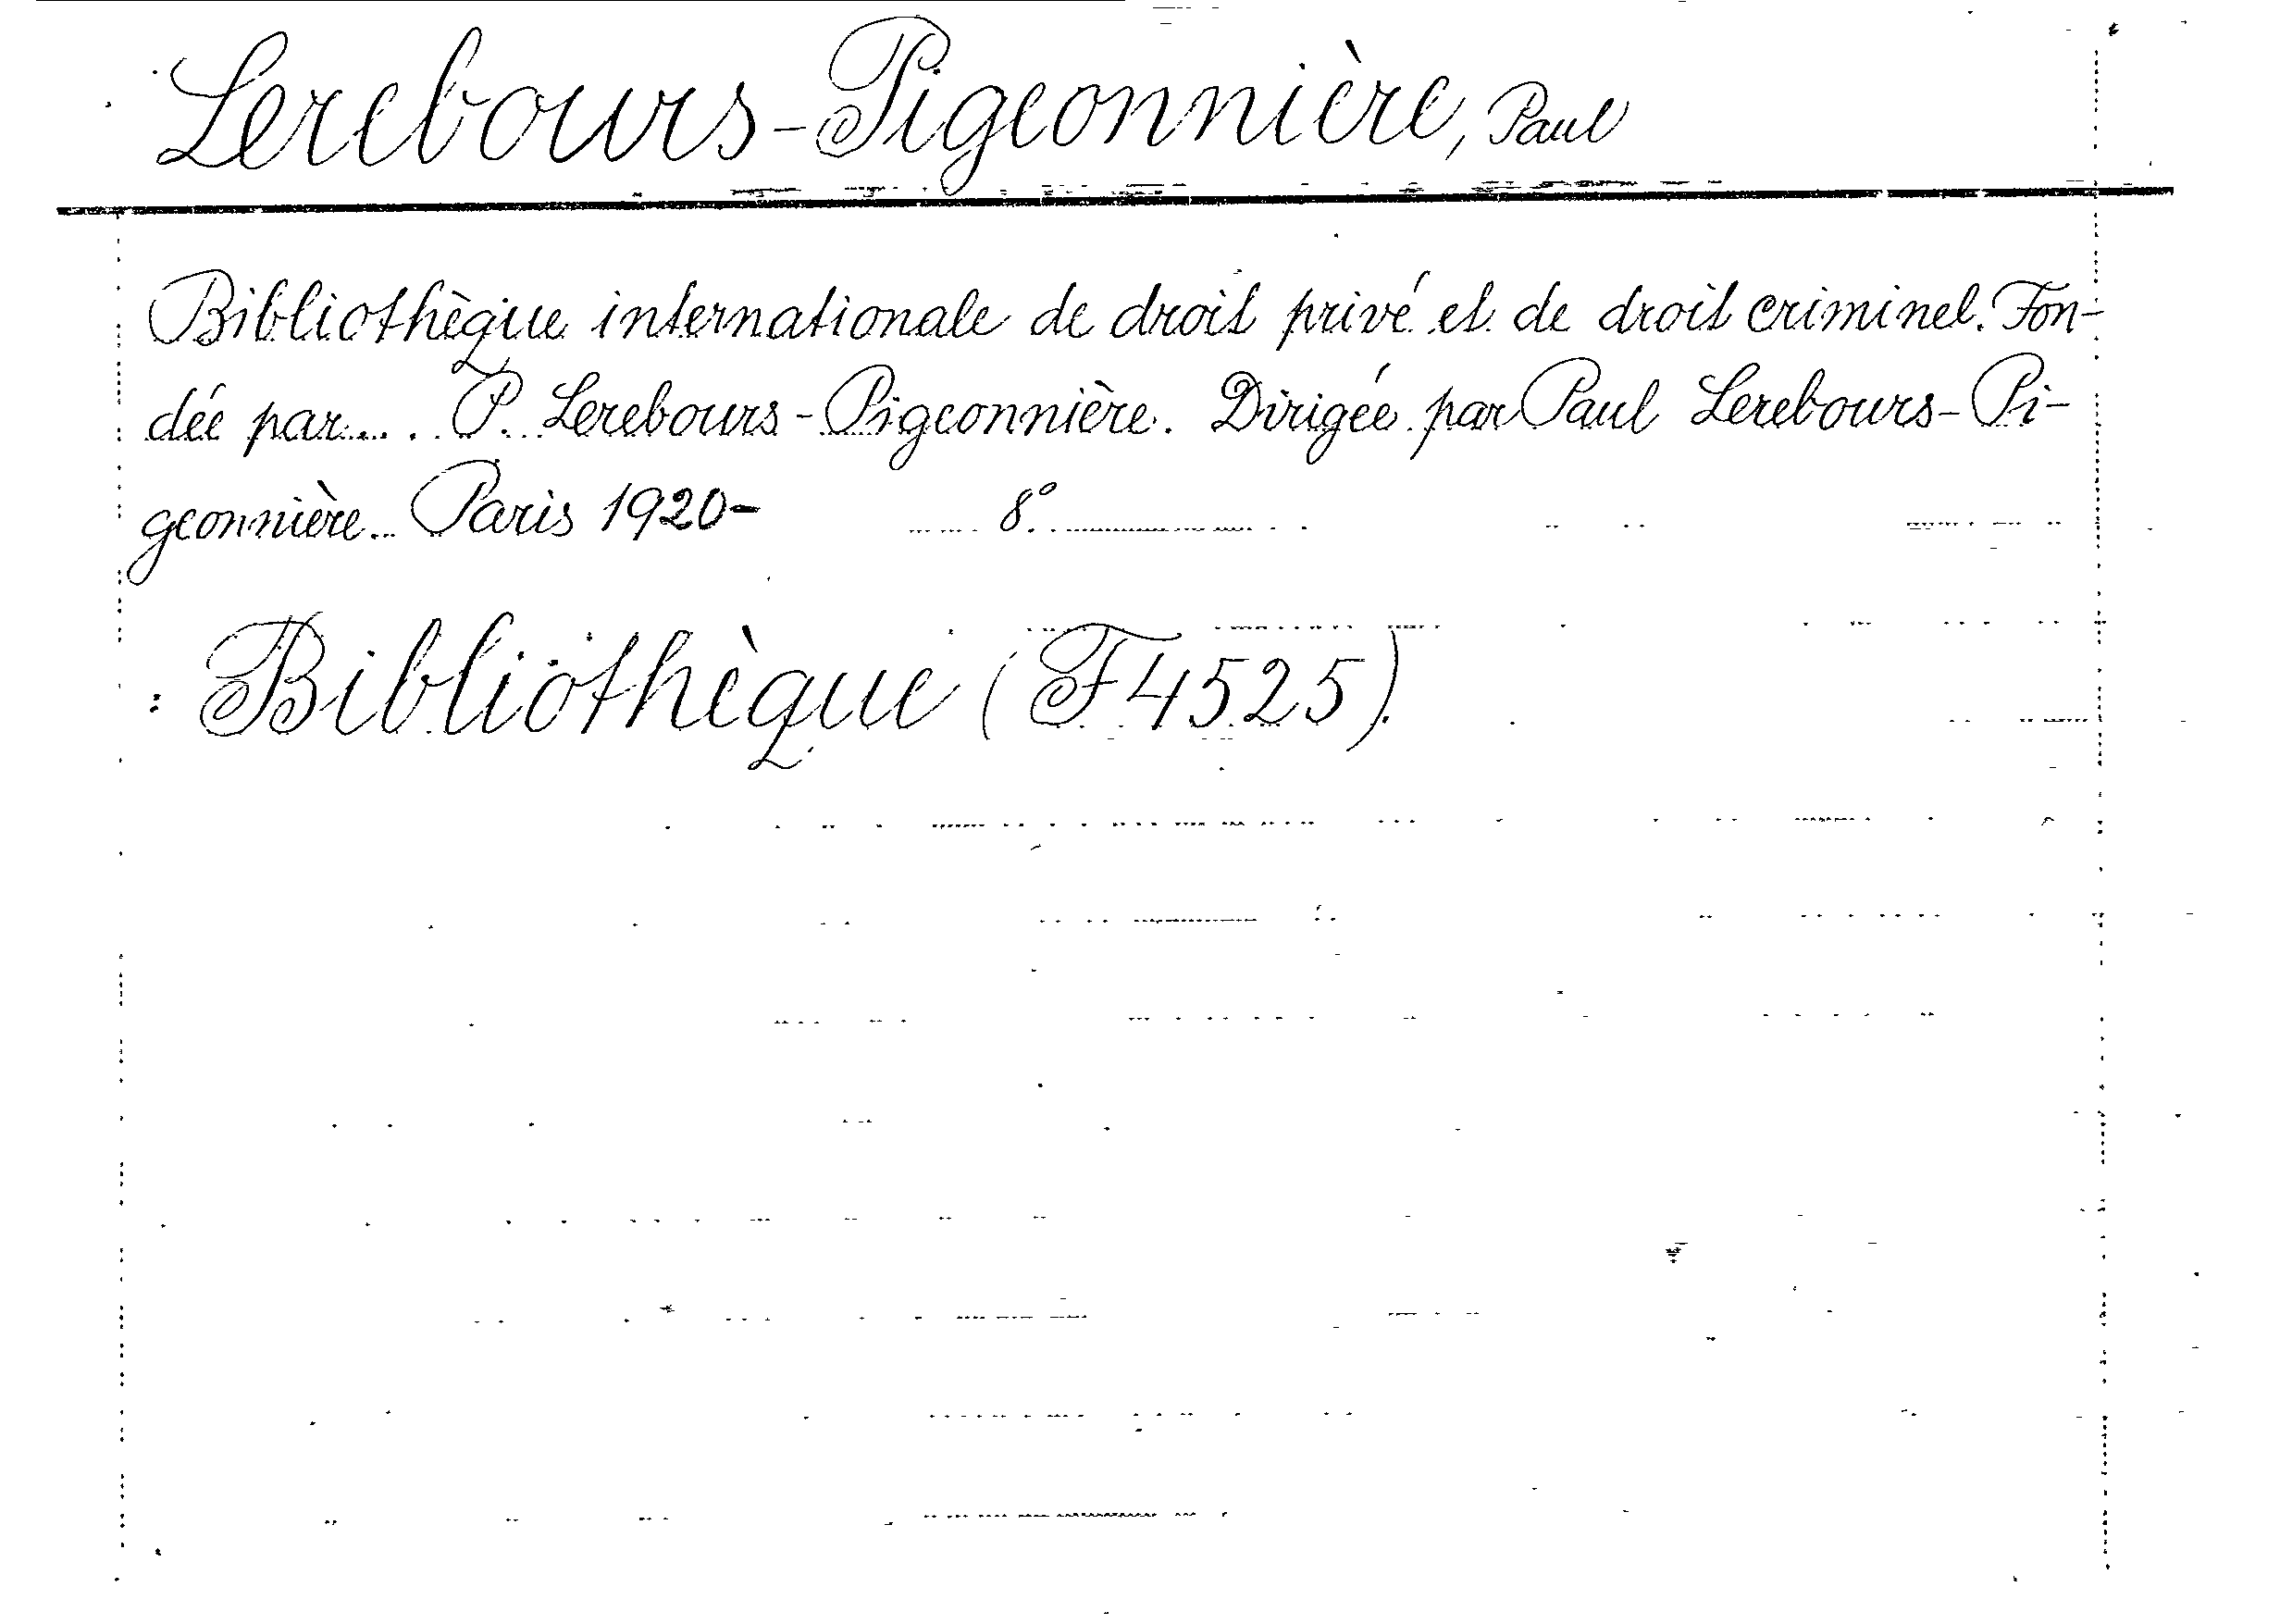 Lerebours-Pigeonnière, Paul
Bibliothèque internationale de droit privé et de droit criminel. Fon-
dée par.... P. Lerebours-Pigeonnière. Dirigée par Paul Lerebours-Pi-
geonnière. Paris 1920- 8°
Bibliothèque (F4525)